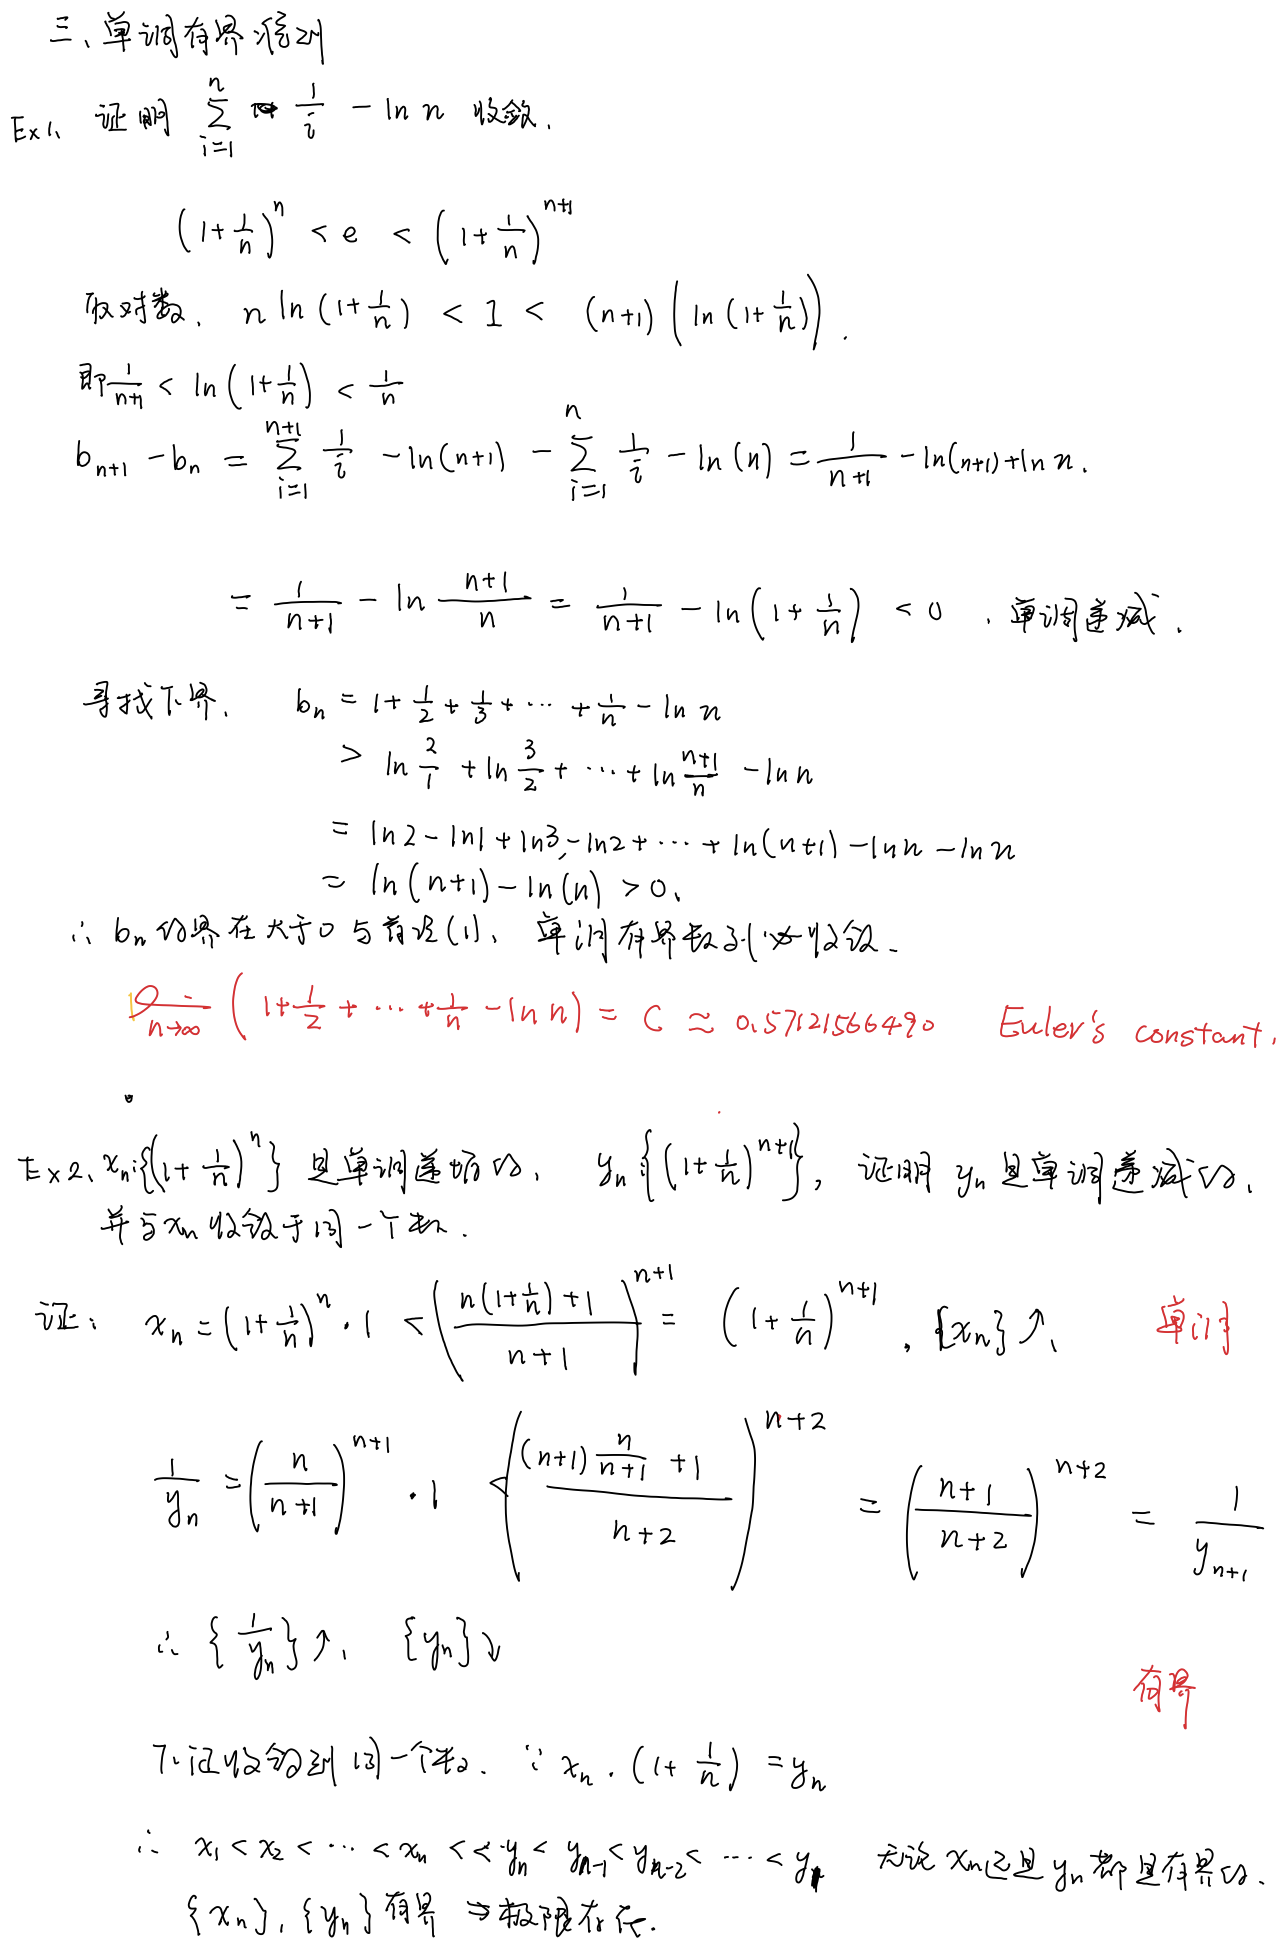 三、单调有界准则
Ex1、证明 \sum_{i=1}^{n} \frac{1}{i} - ln n 收敛.
(1+\frac{1}{n})^{n} < e < (1+\frac{1}{n})^{n+1}
取对数. n ln(1+\frac{1}{n}) < 1 < (n+1)(ln(1+\frac{1}{n})).
即 \frac{1}{n+1} < ln(1+\frac{1}{n}) < \frac{1}{n}
b_{n+1} - b_n = \sum_{i=1}^{n+1} \frac{1}{i} - ln(n+1) - \sum_{i=1}^{n} \frac{1}{i} - ln(n) = \frac{1}{n+1} - ln(n+1) + ln n.
= \frac{1}{n+1} - ln \frac{n+1}{n} = \frac{1}{n+1} - ln(1+\frac{1}{n}) < 0 . 单调递减.
寻找下界. b_n = 1+\frac{1}{2}+\frac{1}{3}+⋯+\frac{1}{n} - ln n
> ln\frac{2}{1} + ln\frac{3}{2} + ⋯ + ln\frac{n+1}{n} - ln n
= ln2 - ln1 + ln3 - ln2 + ⋯ + ln(n+1) - ln n - ln n
= ln(n+1) - ln(n) > 0.
∴ b_n 的界在大于0与首项(1). 单调有界数列必收敛.
n→∞ (1+\frac{1}{2}+⋯+\frac{1}{n} - ln n) = C ≈ 0.57121566490 Euler's constant.
Ex2、x_n:{(1+\frac{1}{n})^{n}} 是单调递增的. y_n:{(1+\frac{1}{n})^{n+1}}, 证明 y_n 是单调递减的.
并与x_n收敛于同一个数.
证: x_n = (1+\frac{1}{n})^{n}·1 < (\frac{n(1+\frac{1}{n})+1}{n+1})^{n+1} = (1+\frac{1}{n})^{n+1}. {x_n}↗. 单调
\frac{1}{y_n} = (\frac{n}{n+1})^{n+1}·1 < (\frac{(n+1)\frac{n}{n+1}+1}{n+2})^{n+2} = (\frac{n+1}{n+2})^{n+2} = \frac{1}{y_{n+1}}
∴ {\frac{1}{y_n}}↗. {y_n}↘
有界
下证收敛到同一个数. ∵ x_n·(1+\frac{1}{n}) = y_n
∴ x_1 < x_2 < ⋯ < x_n < < y_n < y_{n-1} < y_{n-2} < ⋯ < y_1 无论x_n还是y_n都是有界的.
{x_n}, {y_n}有界 ⇒ 极限存在.